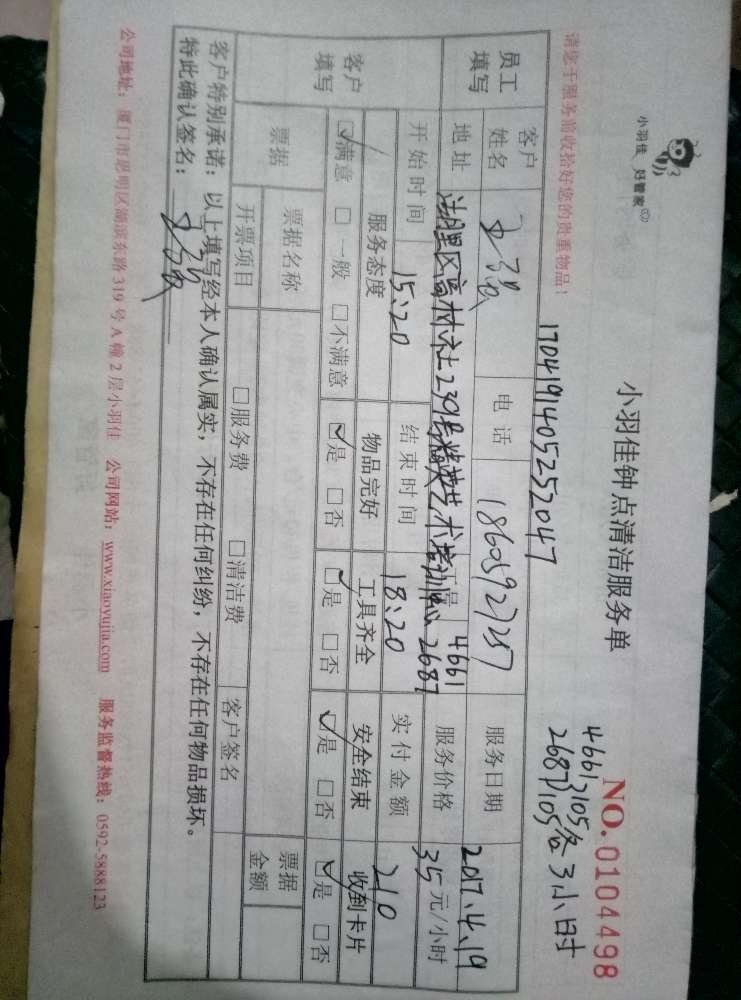 小羽佳 好管家
小羽佳钟点清洁服务单
NO.0104498
4661 105各3小时
2687 105
请您于服务前收拾好您的贵重物品!
1704191405252047
员工填写
客户姓名
电话
18605927257
服务日期
2017.4.19
地址
湖里区高林社239号 艺术培训中心
工号
4661
2687
服务价格
35元/小时
开始时间
15:20
结束时间
18:20
实付金额
210
客户填写
服务态度
物品完好
工具齐全
安全结束
收到卡片
☑满意 □一般 □不满意
☑是 □否
☑是 □否
☑是 □否
☑是 □否
票据
票据名称
票据金额
开票项目
□服务费 □清洁费
客户签名
客户特别承诺:以上填写经本人确认属实,不存在任何纠纷,不存在任何物品损坏。
特此确认签名:
公司地址:厦门市思明区湖滨东路319号A幢2层小羽佳 公司网站:www.xiaoyujia.com 服务监督热线:0592-5888123